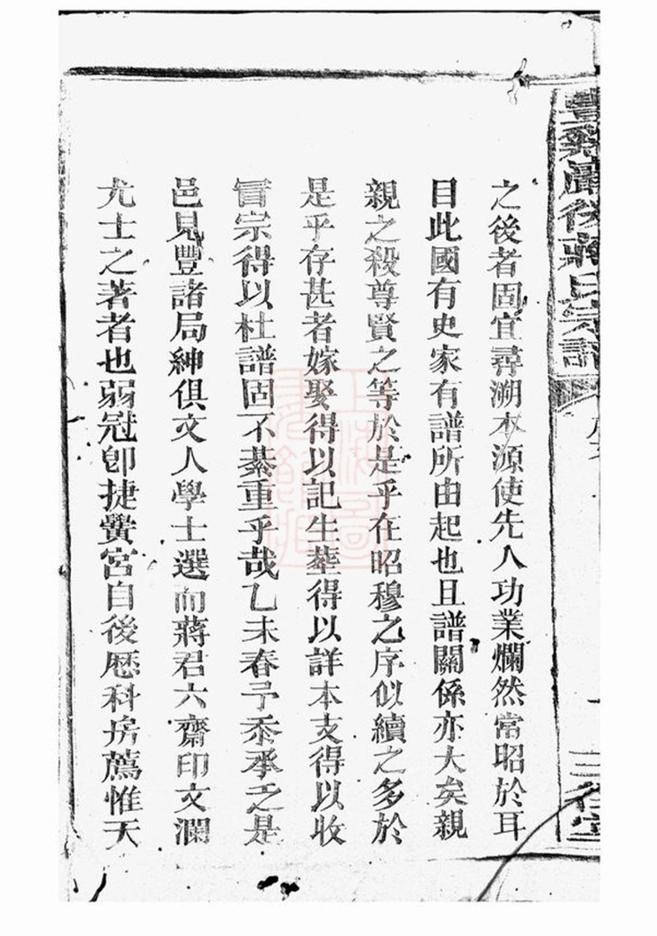 之後者固宜尋溯本源使先人功業爛然常昭於耳
目此國有史家有譜所由起也且譜關係亦大矣親
親之殺尊賢之等於是乎在昭穆之序似續之多於
是乎存甚者嫁娶得以記生塟得以詳本支得以收
冐宗得以杜譜固不綦重乎哉乙未春予忝承乏是
邑見豐諸局紳俱文人學士選而蔣君六齋印文瀾
尤士之著者也弱冠卽捷黌宮自後歷科房薦惟天
蔣氏宗譜